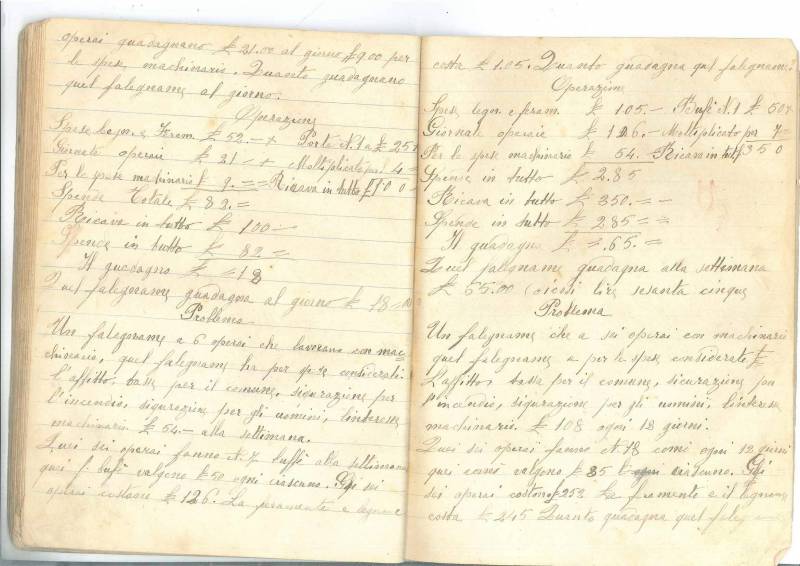 operai guadagnano £ 21.00 al giorno £ 9.00 per
le spese machinario. Quanto guadagnano
quel falegname al giorno.
Operazione
Spese legn. e Ferm. £ 52.— + Porte N.1 a £ 25
Giornate operaie £ 21 — + Moltiplicato per 4 =
Per le spese machinario £ 9. = = Ricava in tutto £ 100
Spende Totale £ 82. =
Ricava in tutto £ 100 —
Spende in tutto £ 82. =
Il guadagno £ = 18
Quel falegname guadagna al giorno £ 18
Problema
Un falegname a 6 operai che lavorano con mac-
chinario, quel falegname ha per spese considerati
l'affitto, tassa per il comune, sigurazione per
l'incendio, sigurezione per gli uomini, l'interesse
machinario £ 54.— alla settimana.
Quei sei operai fanno N. 7 buffè alla settimana
quei buffè valgono £ 50 ogni ciascuno. Gli sei
operai costano £ 126. La feramente e legname
costa £ 1.05. Quanto guadagna quel falegname?
Operazione
Spese legn. e feram. £ 105.— Bufè N. 1 £ 50
Giornate operaie £ 126.— Moltiplicato per 7
Per le spese machinario £ 54.— Ricava in tutt £ 350
Spense in tutto £ 2.85
Ricava in tutto £ 350. = —
Spende in tutto £ 285 = =
Il guadagno £ = .65. =
Quel falegname guadagna alla settimana
£ 65.00 (ossesi lire sesanta cinque
Problema
Un falegname che a sei operai con machinario
quel falegname a per le spese considerate
L'affitto, tassa per il comune, sicurazione per
l'incendio, sigurazione per gli uomini, l'interesse
machinario £ 108 ogni 12 giorni.
Quei sei operai fanno N. 18 comò ogni 12 giorni
quei comò valgono £ 35 ciascuno. Gli
sei operai costono £ 252 La feramente e il legname
costa £ 245 Quanto guadagna quel faleg